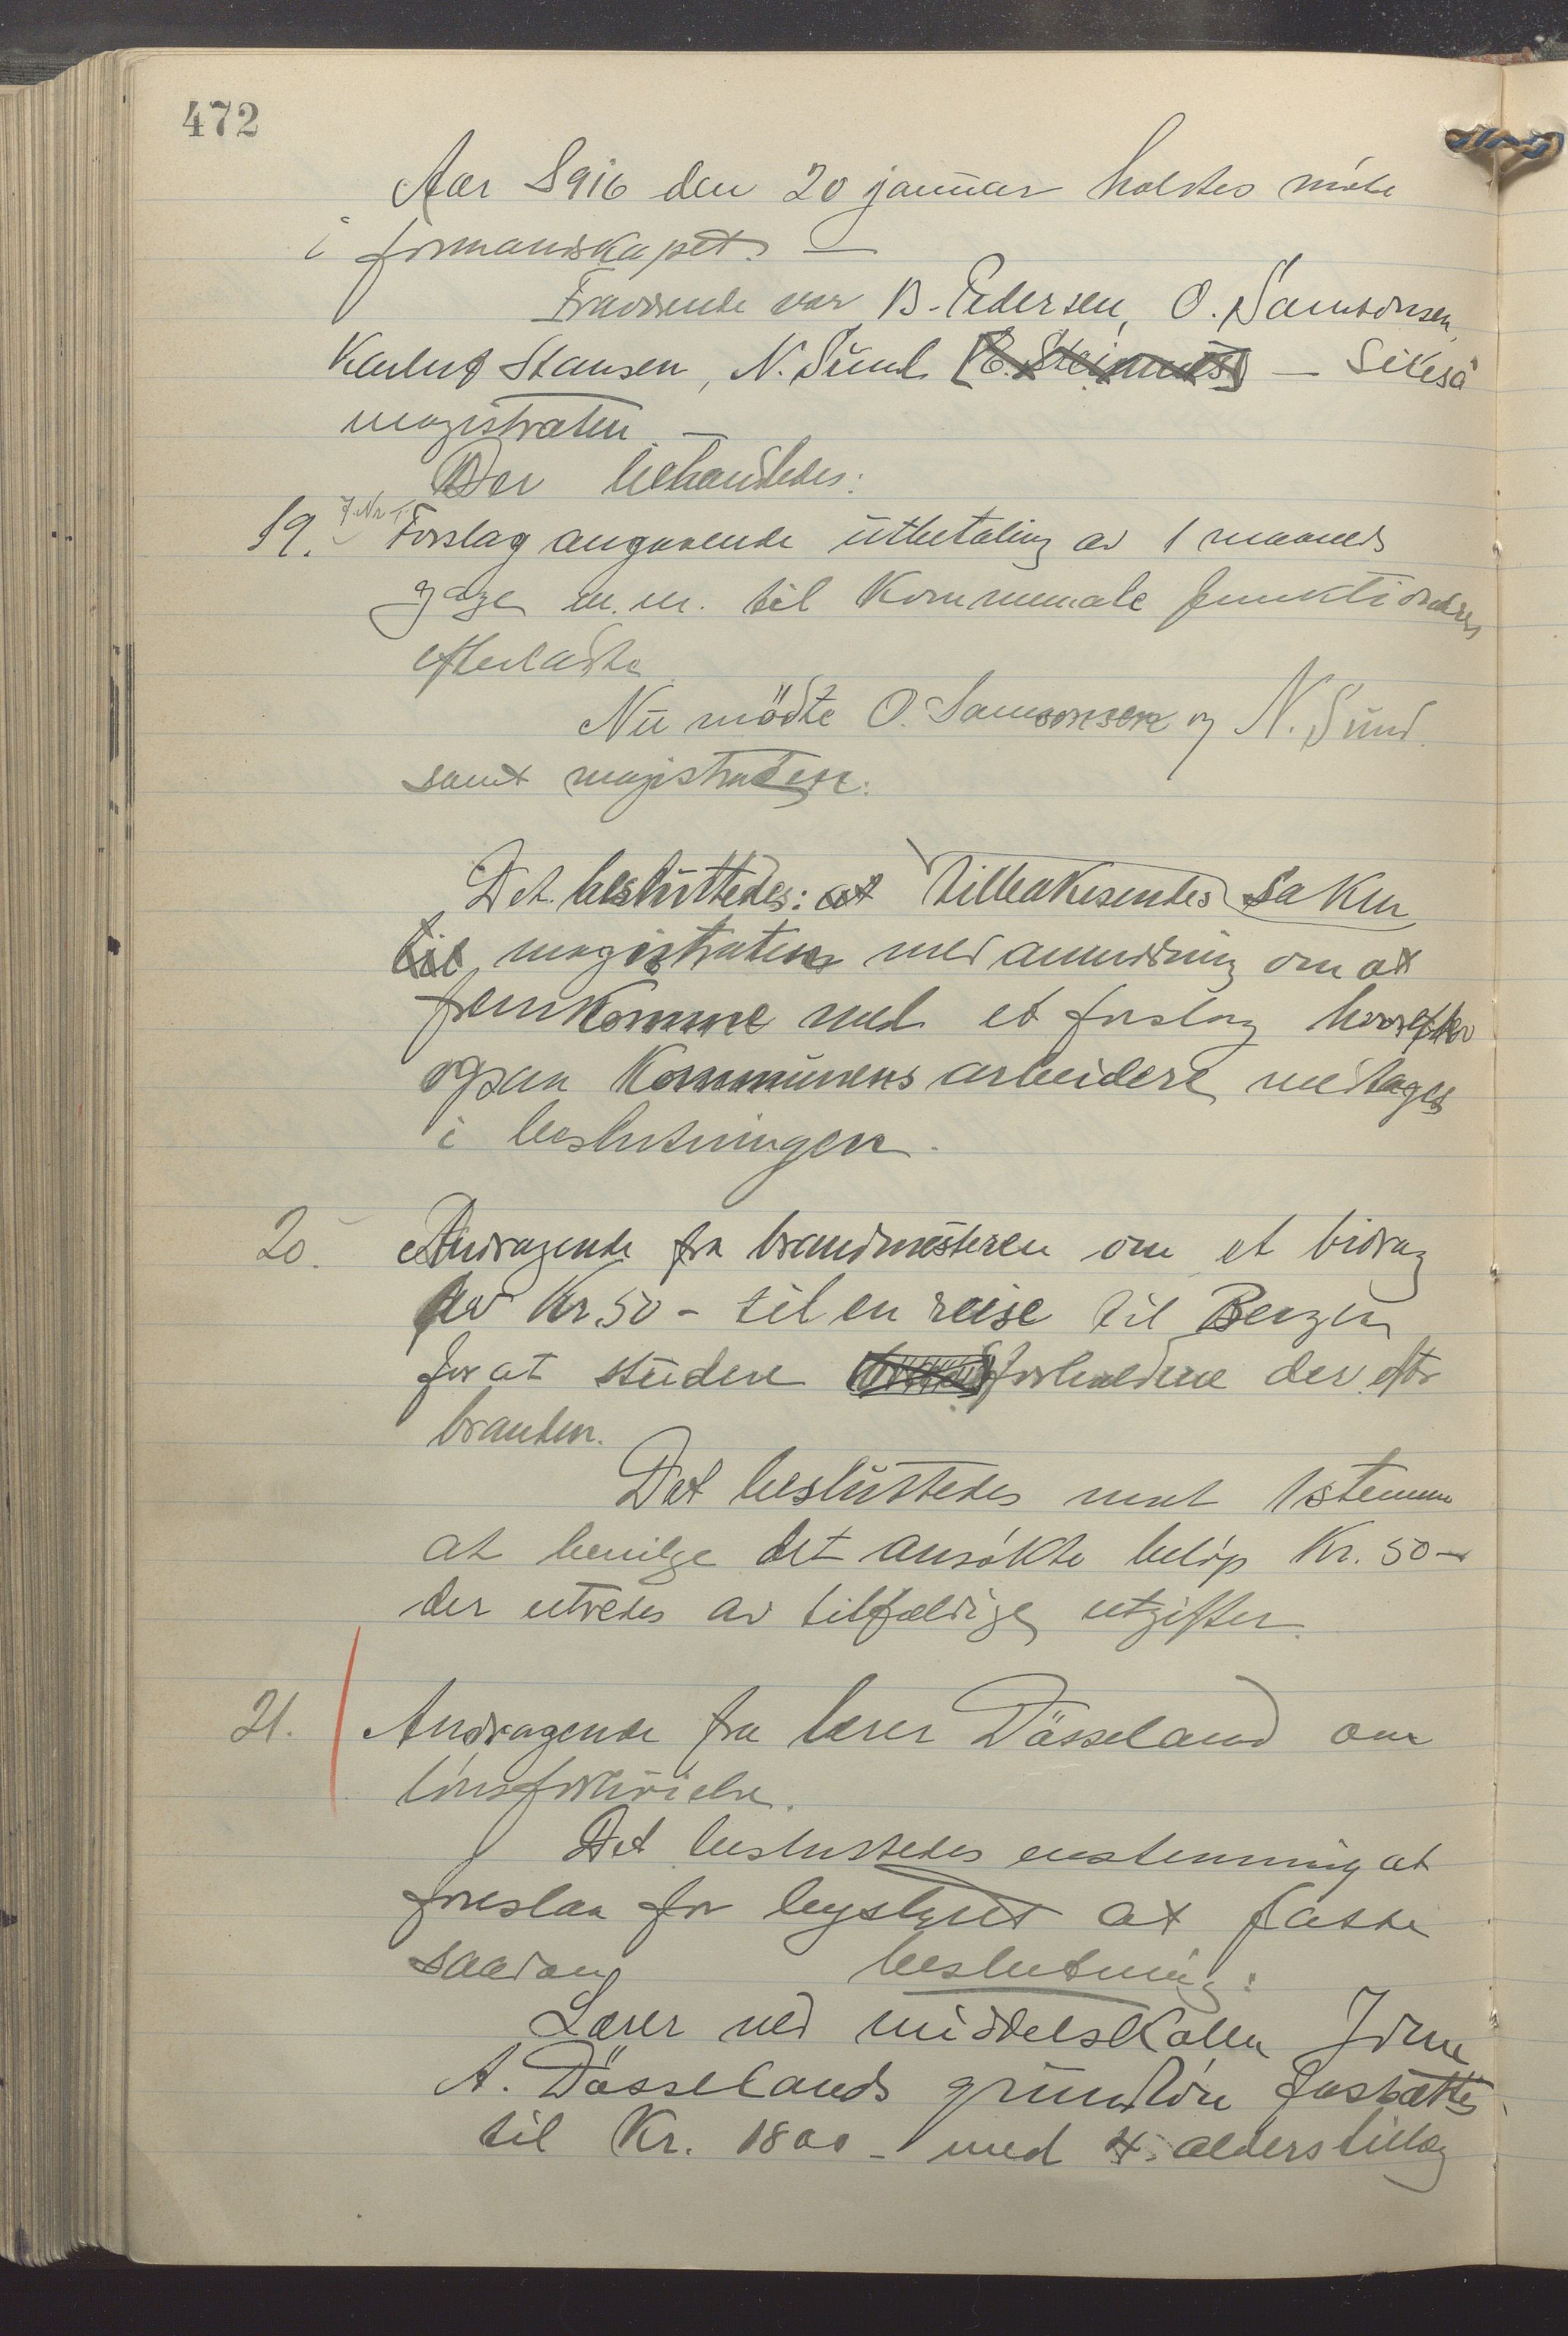 472
Aar 1916 den 20 januar holdtes møte
i formandskapet. —
Fraværende var B. Pedersen, O. Samsonsen,
Stausen, N. Sund [E. Steinnes] — Likeså
magistraten. —
Der behandledes:
19. J.Nr. Forslag angaaende utbetaling av 1 maaneds
gage m.m. til kommunale funktionærers
efterladte.
Nu mødte O. Samsonsen og N. Sund
samt magistraten.
Det besluttedes: at tilbakesendes saken
til magistraten med anmodning om at
fremkomme med et forslag hvorefter
ogsaa kommunens arbeidere medtages
i beslutningen.
20. Andragende fra brandmesteren om et bidrag
av Kr. 50 - til en reise til Bergen
for at studere forholdene der efter
branden.
Det besluttedes mot 1 stemme
at bevilge det ansøkte beløp Kr. 50 —
der utredes av tilfældige utgifter.
21. Andragende fra lærer Dässeland om
lønsforhøielse.
Det besluttedes enstemmig at
foreslaa for bystyret at fatte
saadan beslutning:
Lærer ved middelskolen
A. Dässelands grundløn fastsættes
til Kr. 1800 - med 4 alderstillæg